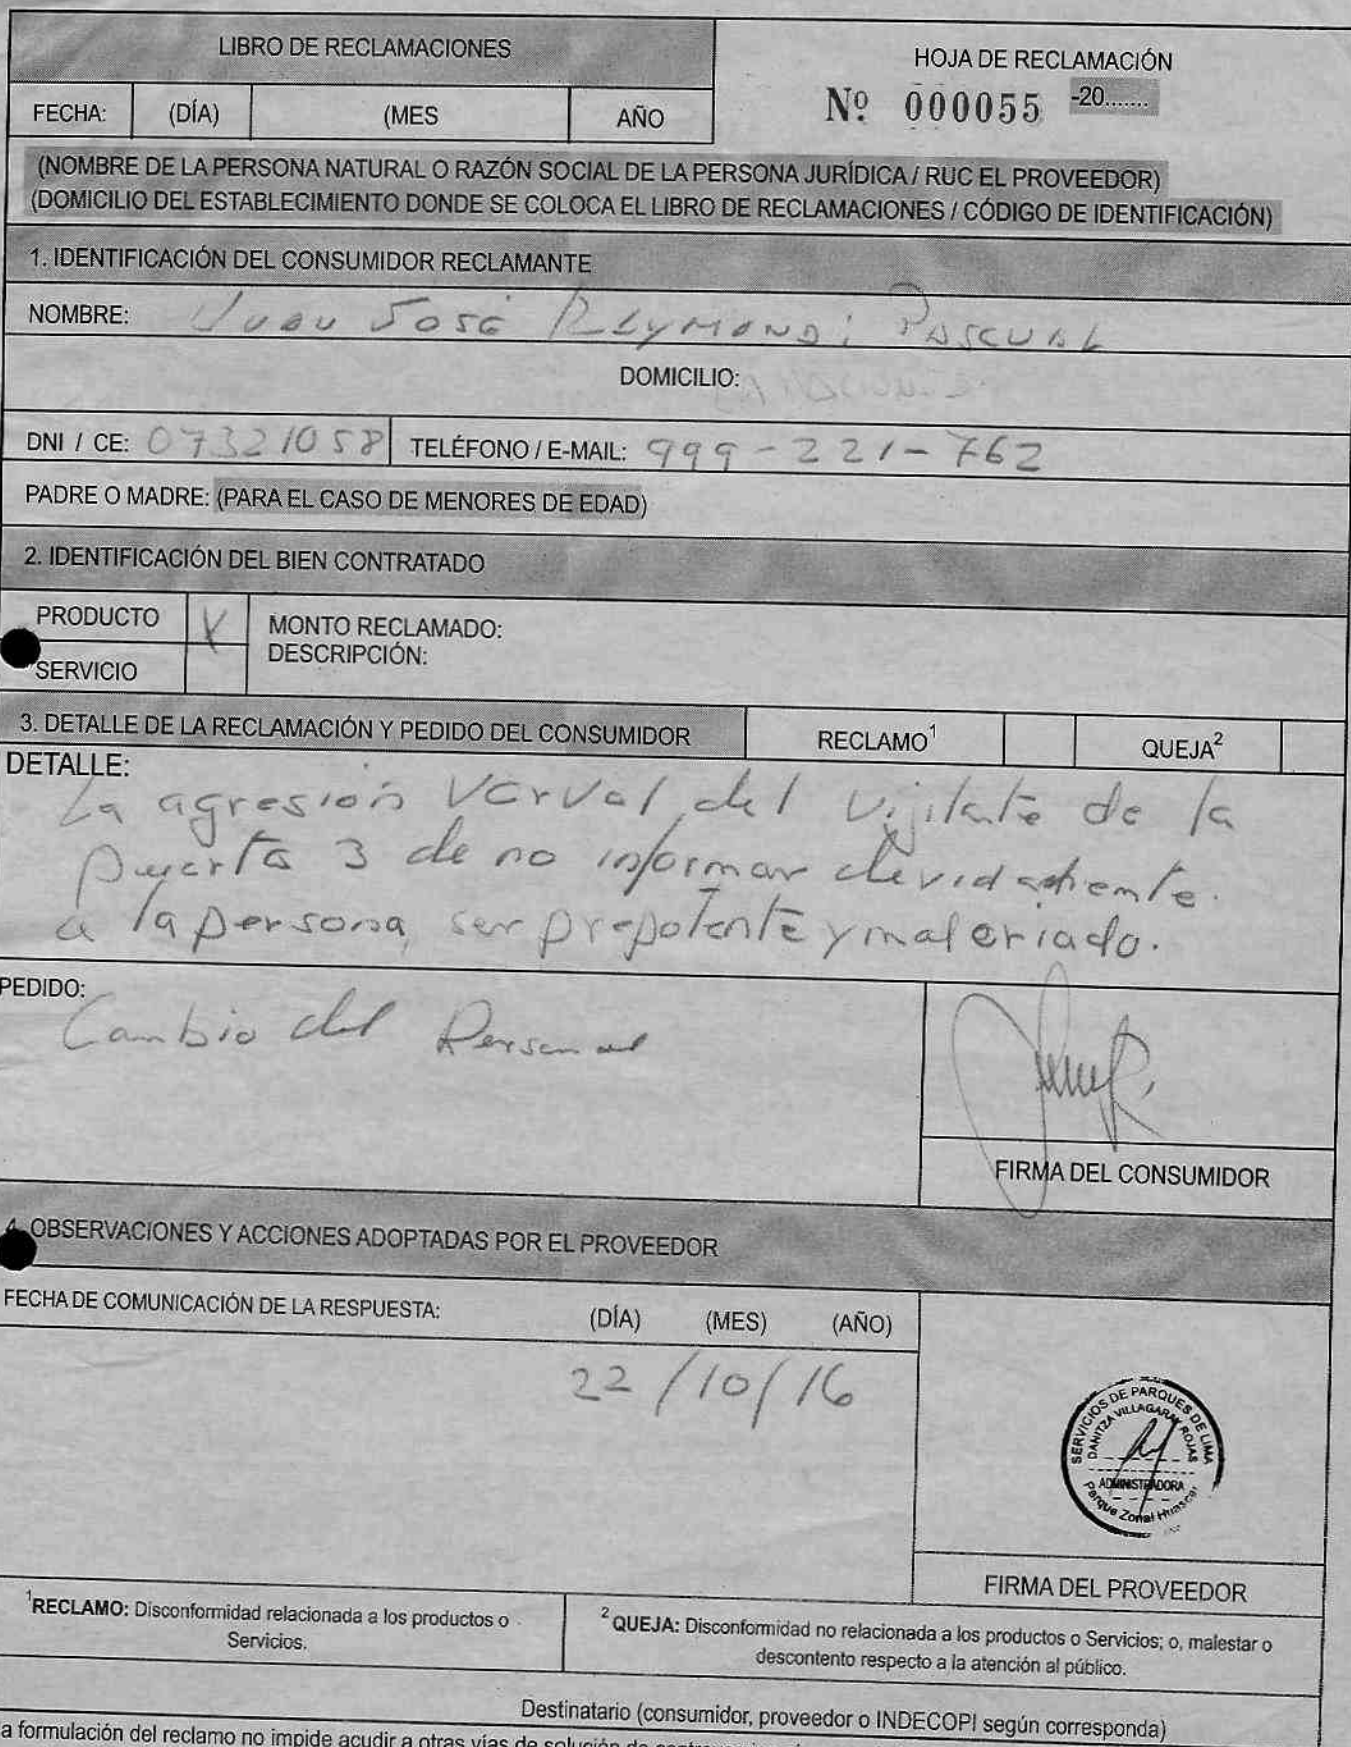 LIBRO DE RECLAMACIONES
HOJA DE RECLAMACIÓN
FECHA: (DÍA) (MES AÑO
Nº 000055 -20.......
(NOMBRE DE LA PERSONA NATURAL O RAZÓN SOCIAL DE LA PERSONA JURÍDICA / RUC EL PROVEEDOR)
(DOMICILIO DEL ESTABLECIMIENTO DONDE SE COLOCA EL LIBRO DE RECLAMACIONES / CÓDIGO DE IDENTIFICACIÓN)
1. IDENTIFICACIÓN DEL CONSUMIDOR RECLAMANTE
NOMBRE: Juan José Raymondi Pascual
DOMICILIO:
DNI / CE: 07321058 TELÉFONO / E-MAIL: 999-221-762
PADRE O MADRE: (PARA EL CASO DE MENORES DE EDAD)
2. IDENTIFICACIÓN DEL BIEN CONTRATADO
PRODUCTO X MONTO RECLAMADO:
DESCRIPCIÓN:
SERVICIO
3. DETALLE DE LA RECLAMACIÓN Y PEDIDO DEL CONSUMIDOR RECLAMO¹ QUEJA²
DETALLE:
La agresión verval del vijilate de la
puerta 3 de no informar
a la persona, ser prepotente y mal criado.
PEDIDO:
Cambio del Personal
FIRMA DEL CONSUMIDOR
4. OBSERVACIONES Y ACCIONES ADOPTADAS POR EL PROVEEDOR
FECHA DE COMUNICACIÓN DE LA RESPUESTA: (DÍA) (MES) (AÑO)
22/10/16
SERVICIOS DE PARQUES DE LIMA
DANITZA VILLAGARAY ROJAS
ADMINISTRADORA
Parque Zonal Huascar
FIRMA DEL PROVEEDOR
¹RECLAMO: Disconformidad relacionada a los productos o
Servicios.
² QUEJA: Disconformidad no relacionada a los productos o Servicios; o, malestar o
descontento respecto a la atención al público.
Destinatario (consumidor, proveedor o INDECOPI según corresponda)
a formulación del reclamo no impide acudir a otras vías de solución de